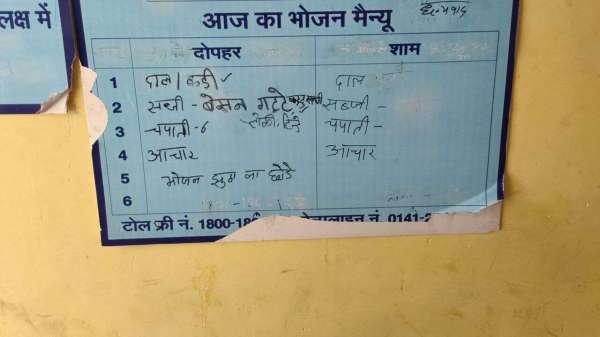 लक्ष में
आज का भोजन मैन्यू
दोपहर शाम
1 दाल/कढी ✓ दाल
2 सब्जी - बेसन गटटे सब्जी -
3 चपाती - 6 चपाती -
4 आचार आचार
5 भोजन झुठा ना छोडे
6
टोल फ्री नं. 1800-18 नं. 0141-2